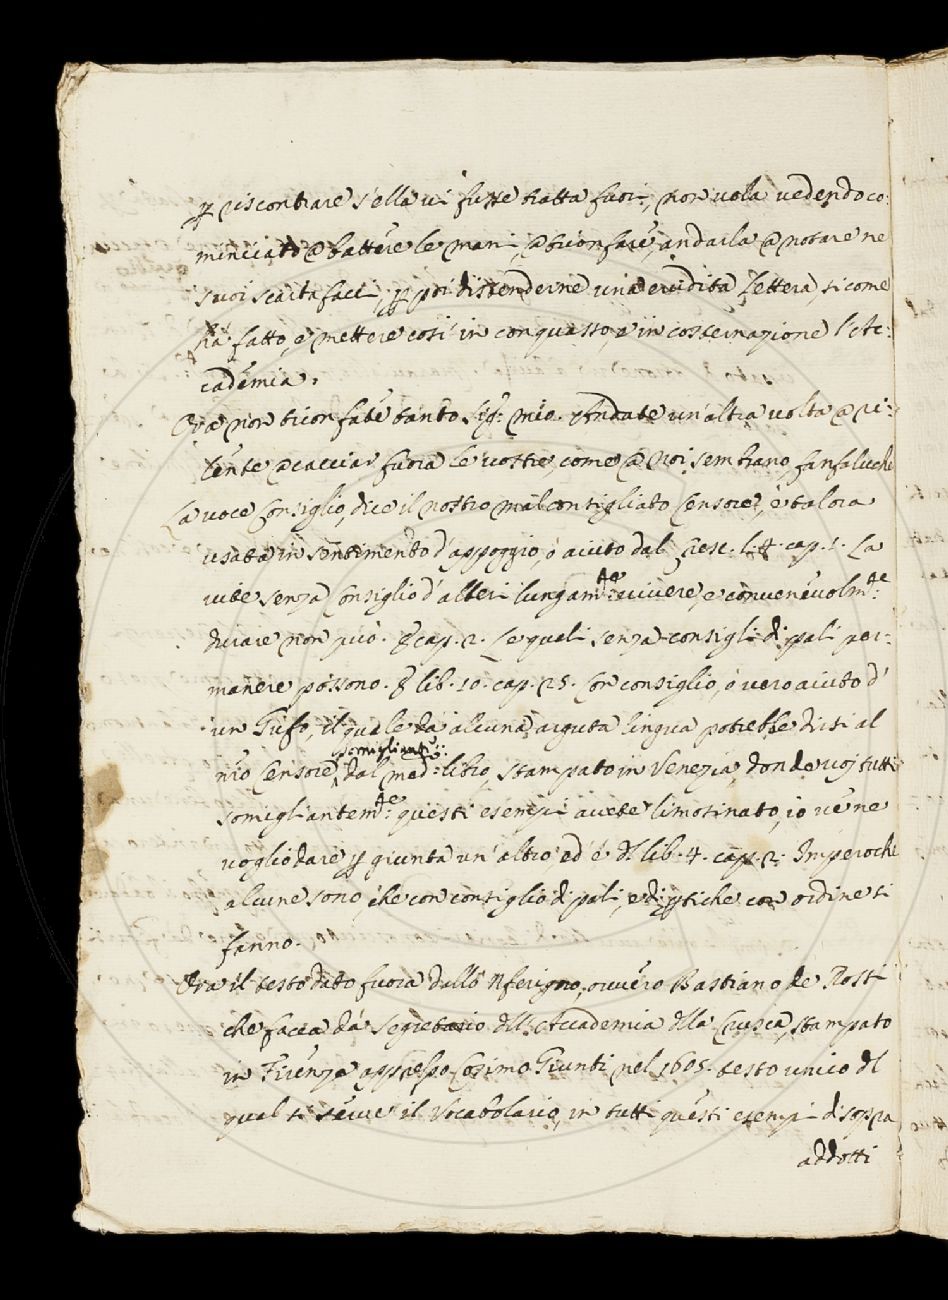 p riscontrare s'ella vi fusse tratta fuori, non vola vedendo co:
minciato a battere le mani, a trionfare, andarla a notare ne
suoi scartafaci, p poi distenderne una erudita Lettera sì come
hà fatto, e mettere così in conquasso, e in costernazione l'Ac:
cademia.
Ora non trionfate tanto Sig: mio. Andate un'altra volta a ri:
lente a cacciar fuora le vostre, come a noi sembrano, fanfaluche
La voce Consiglio, dice il nostro malconsigliato Censore, è talora
usata in sentimento d'appoggio, ò aiuto dal Cresc. l. 4. cap. 1. La
vite senza Consiglio d'alberi lungam:te vivere, e convenevolm:te
durare non può. E cap. 2. Le quali senza consigli di pali per:
manere possono. E lib. 10. cap. 25. Con consiglio, ò vero aiuto d'
un Gufo, il quale da alcuna arguta lingua potrebbe dirsi al
nr̃o Censore somigliante: dal med:o libro, stampato in Venezia, donde voi tutti
somigliantem:te questi esempi avete limosinato, io ve ne
voglio dare p giunta un'altro, ed è dl lib. 4. cap. 2. Imperochè
alcune sono, che con consiglio di pali, e di pertiche con ordine si
fanno.
Ora il testo dato fuora dallo 'Nferigno, ovvero Bastiano de Rossi
che facea da Segretario dll'Accademia dlla Crusca, stampato
in Firenze appresso Cosimo Giunti nel 1605. testo unico dl
qual si serve il Vocabolario, in tutti questi esempi di sopra
addotti